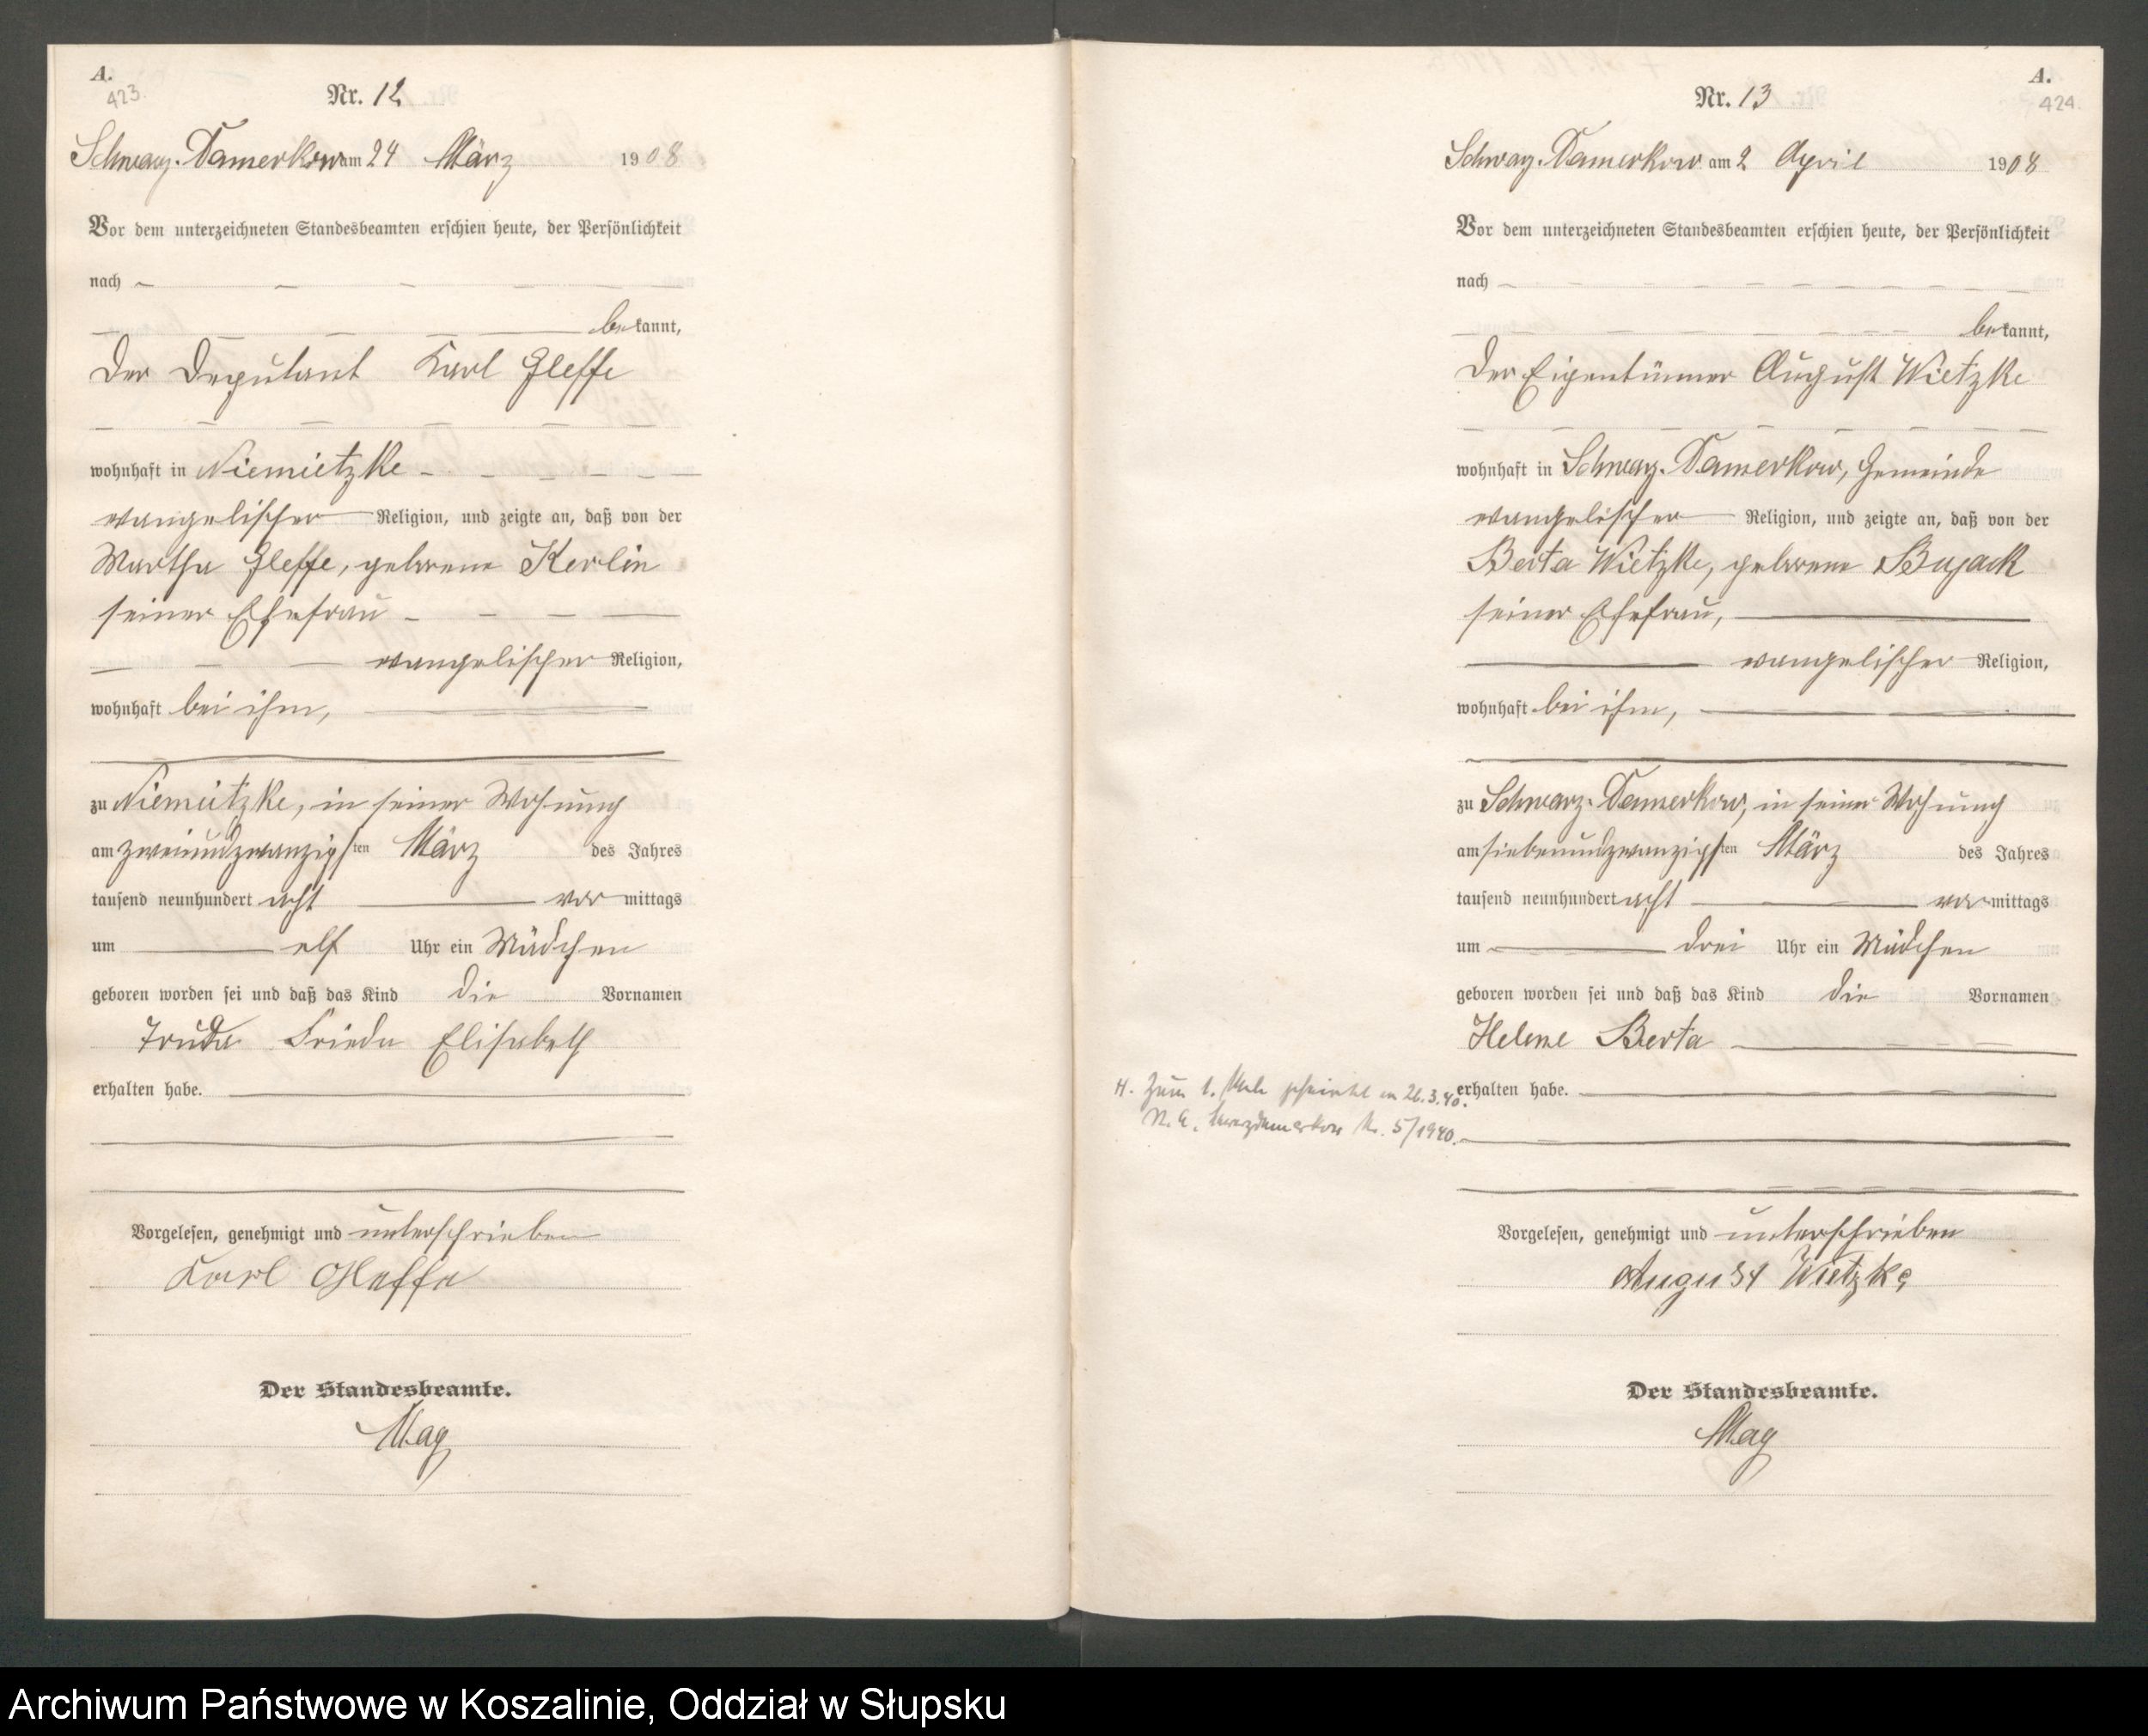 A.
423.
Nr. 12
Schwarz-Damerkow am 24 März 1908
Vor dem unterzeichneten Standesbeamten erschien heute, der Persönlichkeit
nach
bekannt,
der Deputant Karl Gleffe
wohnhaft in Niemietzke
evangelischer Religion, und zeigte an, daß von der
Martha Gleffe, geborene Kerlin
seiner Ehefrau
evangelischer Religion,
wohnhaft bei ihm,
zu Niemietzke, in seiner Wohnung
am zweiundzwanzigsten März des Jahres
tausend neunhundert acht vormittags
um elf Uhr ein Mädchen
geboren worden sei und daß das Kind die Vornamen
Truda Frieda Elisabeth
erhalten habe.
Vorgelesen, genehmigt und unterschrieben
Karl Gleffe
Der Standesbeamte.
Mag
A.
424.
Nr. 13
Schwarz-Damerkow am 2 April 1908
Vor dem unterzeichneten Standesbeamten erschien heute, der Persönlichkeit
nach
bekannt,
der Eigentümer August Wietzke
wohnhaft in Schwarz-Damerkow, Gemeinde
evangelischer Religion, und zeigte an, daß von der
Berta Wietzke, geborene Bujack
seiner Ehefrau,
evangelischer Religion,
wohnhaft bei ihm,
zu Schwarz-Damerkow, in seiner Wohnung
am siebenundzwanzigsten März des Jahres
tausend neunhundert acht vormittags
um drei Uhr ein Mädchen
geboren worden sei und daß das Kind die Vornamen
Helene Berta
erhalten habe.
H. Zum 1. Male am 26.3.40.
Schwarzdamerkow Nr. 5/1940.
Vorgelesen, genehmigt und unterschrieben
August Wietzke
Der Standesbeamte.
Mag
Archiwum Państwowe w Koszalinie, Oddział w Słupsku